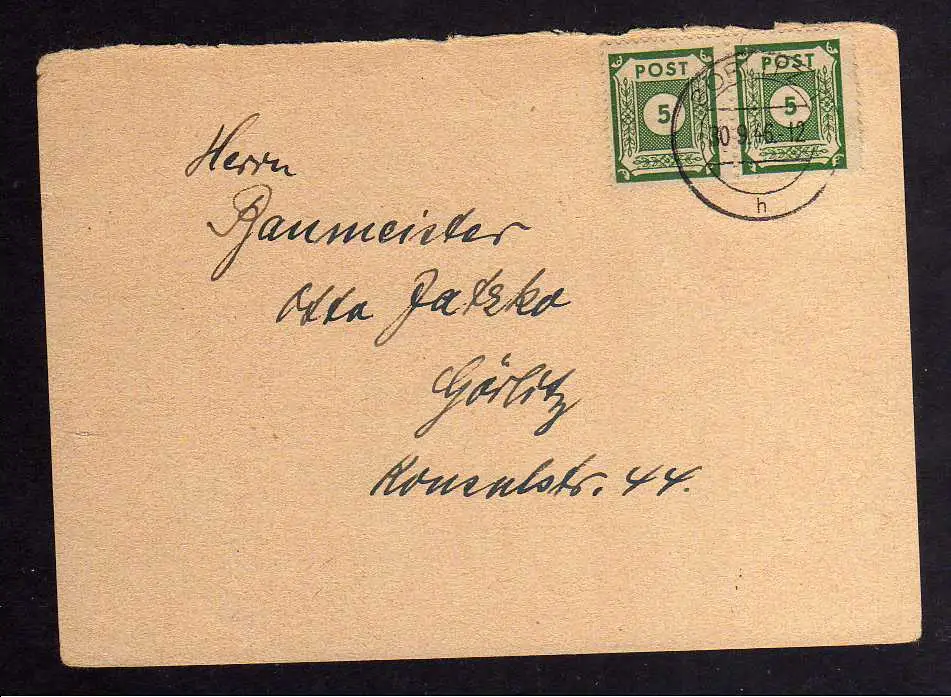 POST POST
5 5
30.9.46.12
h
Herrn
Baumeister
Otto Jatzko
Görlitz
Konsulstr. 44.